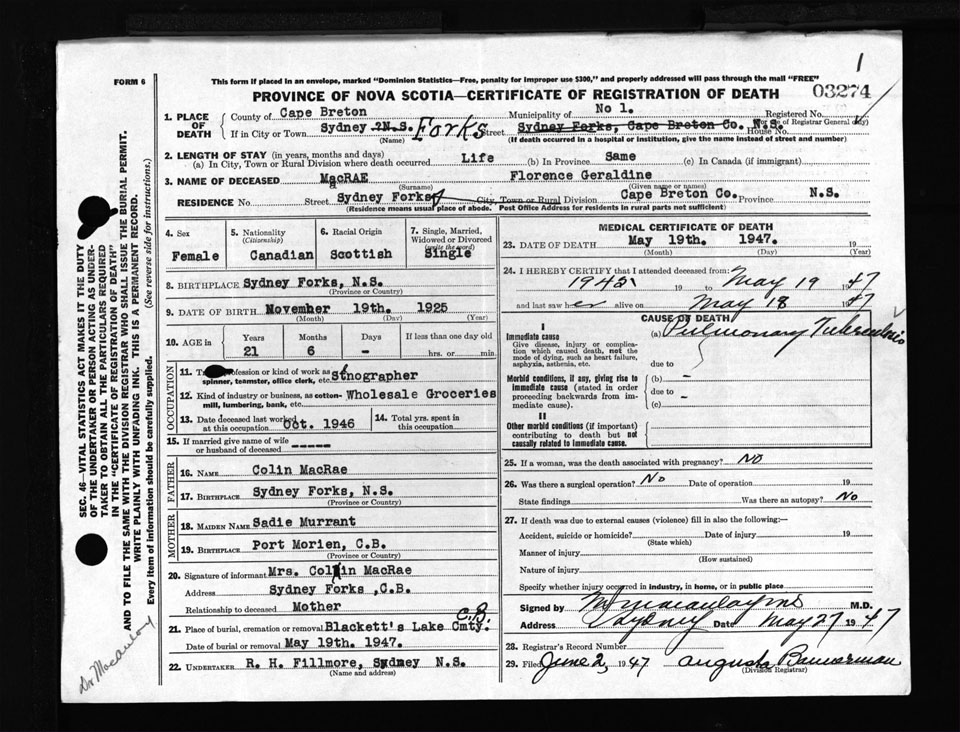 1
FORM 6
This form if placed in an envelope, marked "Dominion Statistics—Free, penalty for improper use $300," and properly addressed will pass through the mail "FREE"
PROVINCE OF NOVA SCOTIA—CERTIFICATE OF REGISTRATION OF DEATH
03274
1. PLACE OF DEATH
County of Cape Breton Municipality of No 1. Registered No.
(For use of Registrar General only)
If in City or Town Sydney N.S. Forks Street Sydney Forks, Cape Breton Co. N.S. House No.
(Name) (If death occurred in a hospital or institution, give the name instead of street and number)
2. LENGTH OF STAY (in years, months and days)
(a) In City, Town or Rural Division where death occurred Life (b) In Province Same (c) In Canada (if immigrant)
3. NAME OF DECEASED MacRAE Florence Geraldine
(Surname) (Given name or names)
RESIDENCE No. Street Sydney Forks City, Town or Rural Division Cape Breton Co. Province N.S.
(Residence means usual place of abode. Post Office Address for residents in rural parts not sufficient)
4. Sex
Female
5. Nationality
(Citizenship)
Canadian
6. Racial Origin
Scottish
7. Single, Married, Widowed or Divorced
(write the word)
Single
8. BIRTHPLACE Sydney Forks, N.S.
(Province or Country)
9. DATE OF BIRTH November 19th. 1925
(Month) (Day) (Year)
10. AGE in
Years Months Days If less than one day old
21 6 - hrs. or min.
OCCUPATION
11. Profession or kind of work as
spinner, teamster, office clerk, etc. Stnographer
12. Kind of industry or business, as cotton-
mill, lumbering, bank, etc. Wholesale Groceries
13. Date deceased last worked
at this occupation Oct. 1946
14. Total yrs. spent in
this occupation
15. If married give name of wife
or husband of deceased -----
FATHER
16. NAME Colin MacRae
17. BIRTHPLACE Sydney Forks, N.S.
(Province or Country)
MOTHER
18. MAIDEN NAME Sadie Murrant
19. BIRTHPLACE Port Morien, C.B.
(Province or Country)
20. Signature of informant Mrs. Colin MacRae
Address Sydney Forks ,C.B.
Relationship to deceased Mother
21. Place of burial, cremation or removal Blackett's Lake Cmty. C.B.
Date of burial or removal May 19th. 1947.
22. UNDERTAKER R. H. Fillmore, Sydney N.S.
(Name and address)
MEDICAL CERTIFICATE OF DEATH
23. DATE OF DEATH May 19th. 1947. 19
(Month) (Day) (Year)
24. I HEREBY CERTIFY that I attended deceased from:
1945 19 to May 19 1947
and last saw her alive on May 18 1947
CAUSE OF DEATH
I
Immediate cause
Give disease, injury or complication which caused death, not the mode of dying, such as heart failure, asphyxia, asthenia, etc.
(a) Pulmonary Tuberculosis
due to
Morbid conditions, if any, giving rise to immediate cause (stated in order proceeding backwards from immediate cause).
(b) -
due to -
(c)
II
Other morbid conditions (if important) contributing to death but not causally related to immediate cause.
25. If a woman, was the death associated with pregnancy? No
26. Was there a surgical operation? No Date of operation 19
State findings Was there an autopsy? No
27. If death was due to external causes (violence) fill in also the following:—
Accident, suicide or homicide? Date of injury 19
(State which)
Manner of injury
(How sustained)
Nature of injury
Specify whether injury occurred in industry, in home, or in public place
Signed by M.D.
Address Sydney Date May 27 1947
28. Registrar's Record Number
29. Filed June 2, 1947 Augusta Bannerman
(Division Registrar)
SEC. 46—VITAL STATISTICS ACT MAKES IT THE DUTY
OF THE UNDERTAKER OR PERSON ACTING AS UNDER-
TAKER TO OBTAIN ALL THE PARTICULARS REQUIRED
IN THE "CERTIFICATE OF REGISTRATION OF DEATH"
AND TO FILE THE SAME WITH THE DIVISION REGISTRAR WHO SHALL ISSUE THE BURIAL PERMIT.
WRITE PLAINLY WITH UNFADING INK. THIS IS A PERMANENT RECORD.
Every item of information should be carefully supplied. (See reverse side for instructions.)
Dr Macaulay